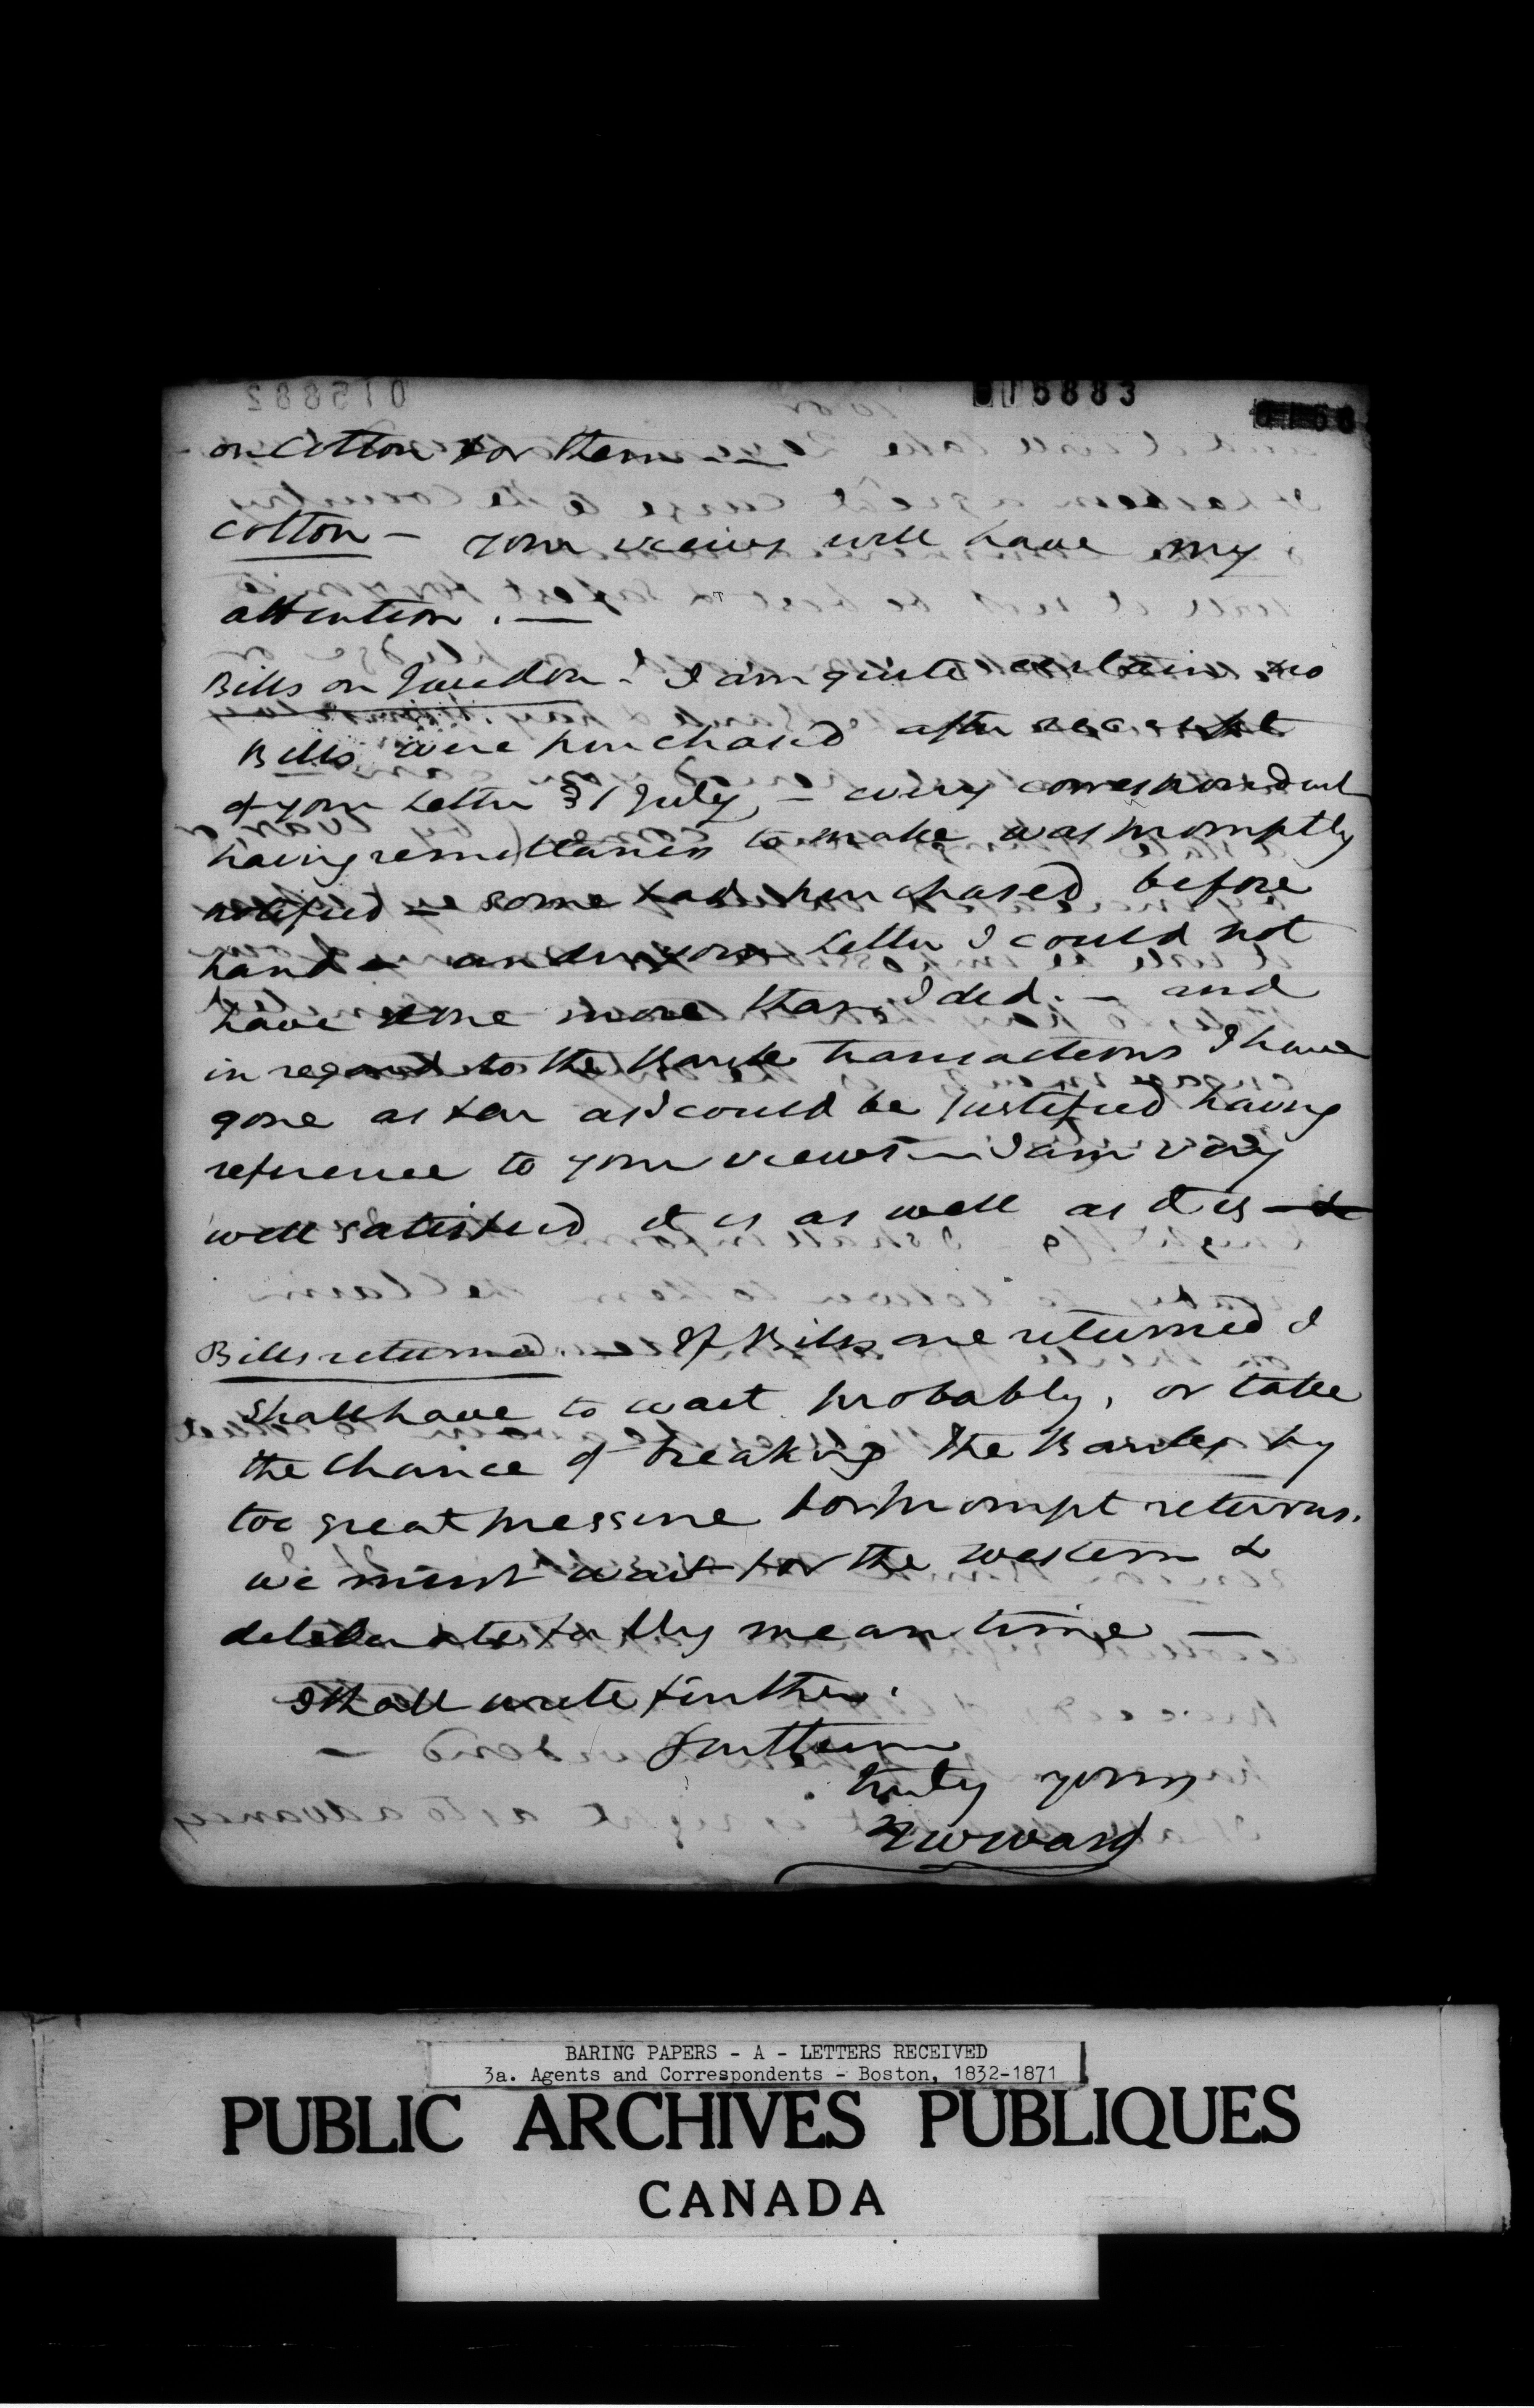 015883
on Cotton for them —
Cotton — your views will have my
attention. —
Bills on London - I am quite certain no
Bills were purchased after receipt
of your letter 31 July, — every correspondent
having remittances to make was promptly
notified — some had purchased before
hand — under your letter I could not
have done more than I did. — and
in regard to the Bank transactions I have
gone as far as I could be justified having
reference to your views — I am very
well satisfied it is as well as it is —
Bills returned. — If Bills are returned I
shall have to wait probably, or take
the chance of breaking the Banks by
too great pressure for prompt returns.
We must wait for the western &
meantime —
I shall write further.
truly yours
TWWard
BARING PAPERS - A - LETTERS RECEIVED
3a. Agents and Correspondents - Boston, 1832-1871
PUBLIC ARCHIVES PUBLIQUES
CANADA